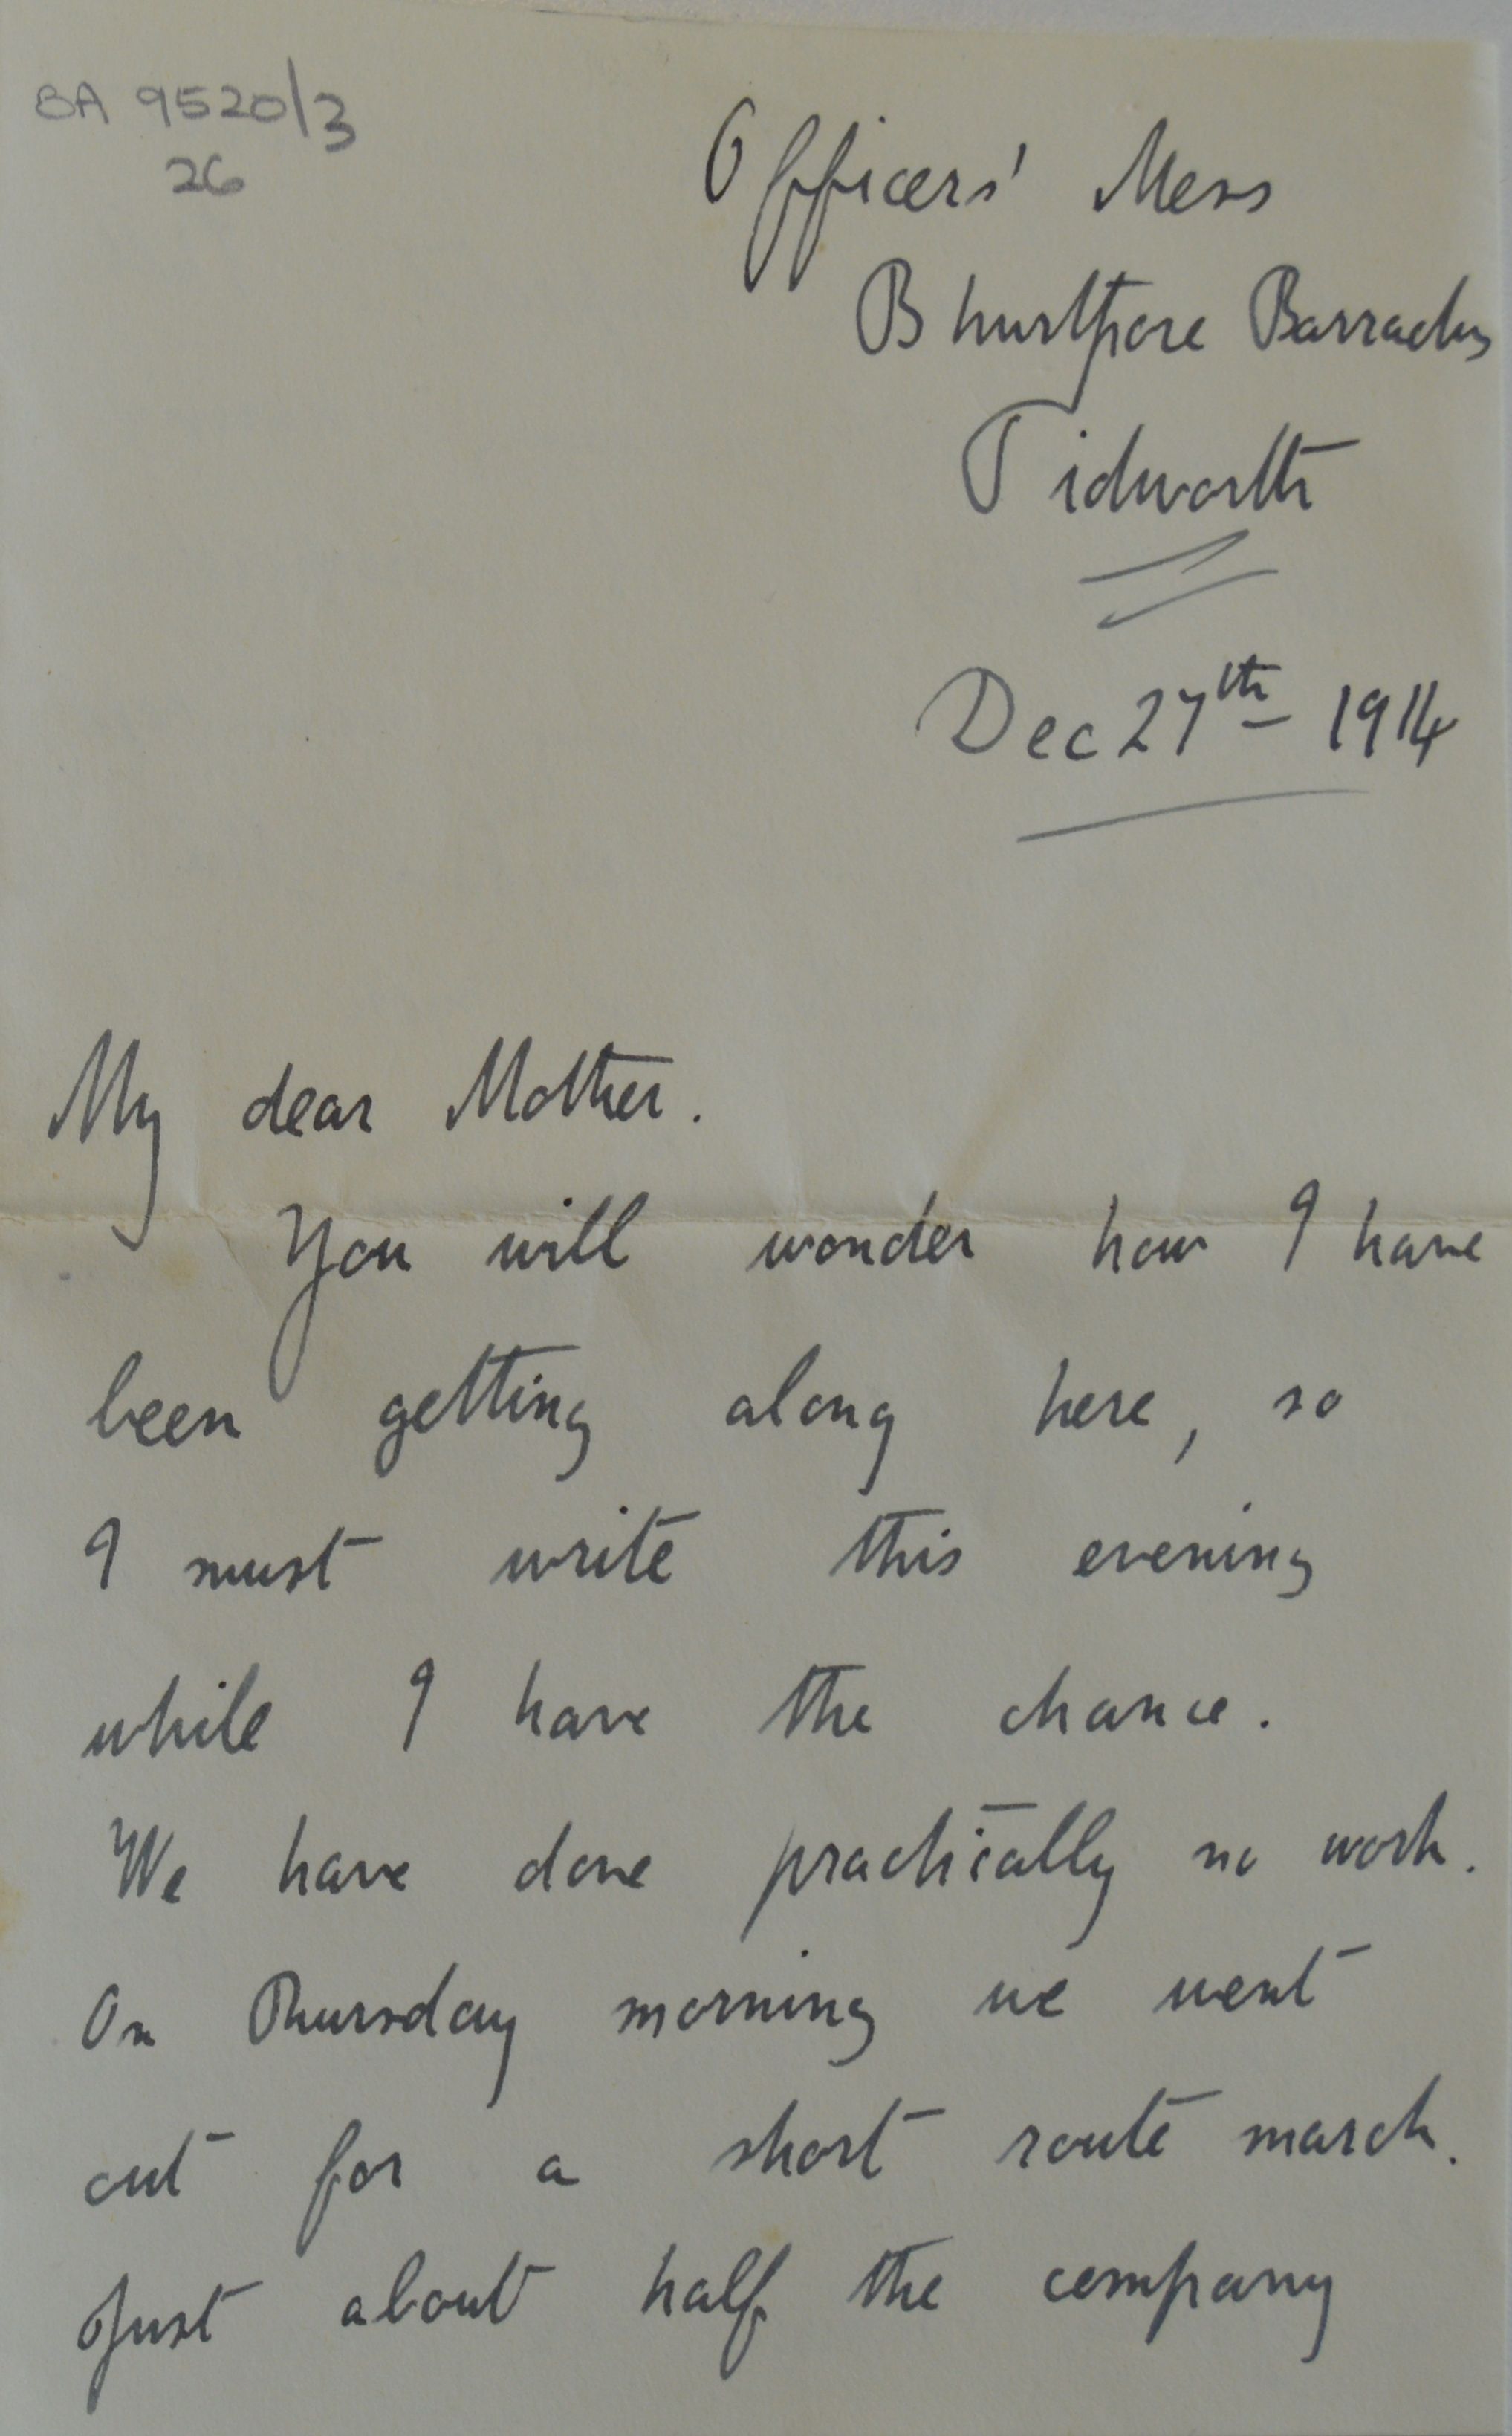 BA 9520/3
26
Officers' Mess
Bhurtpore Barracks
Tidworth
Dec 27th 1914
My dear Mother.
You will wonder how I have
been getting along here, so
I must write this evening
while I have the chance.
We have done practically no work.
On Thursday morning we went
out for a short route march.
Just about half the company